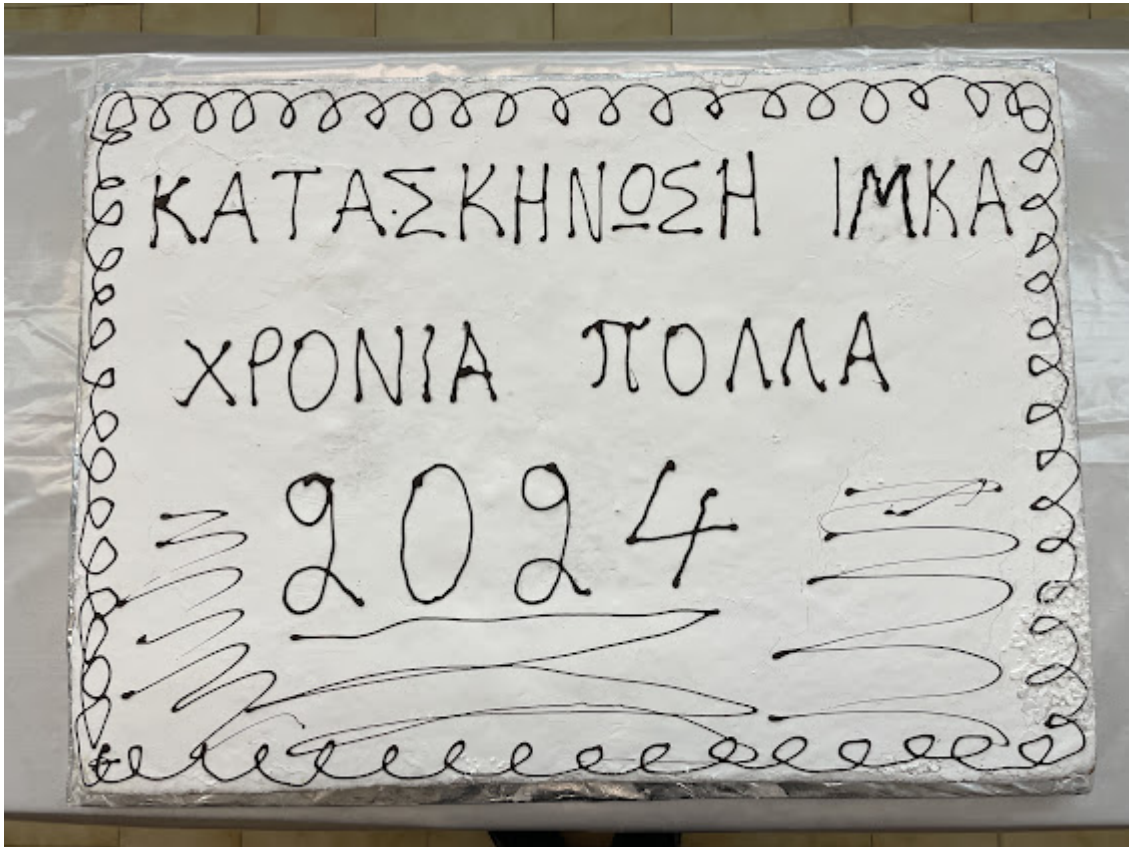 ΚΑΤΑΣΚΗΝΩΣΗ ΙΜΚΑ
ΧΡΟΝΙΑ ΠΟΛΛΑ
2024